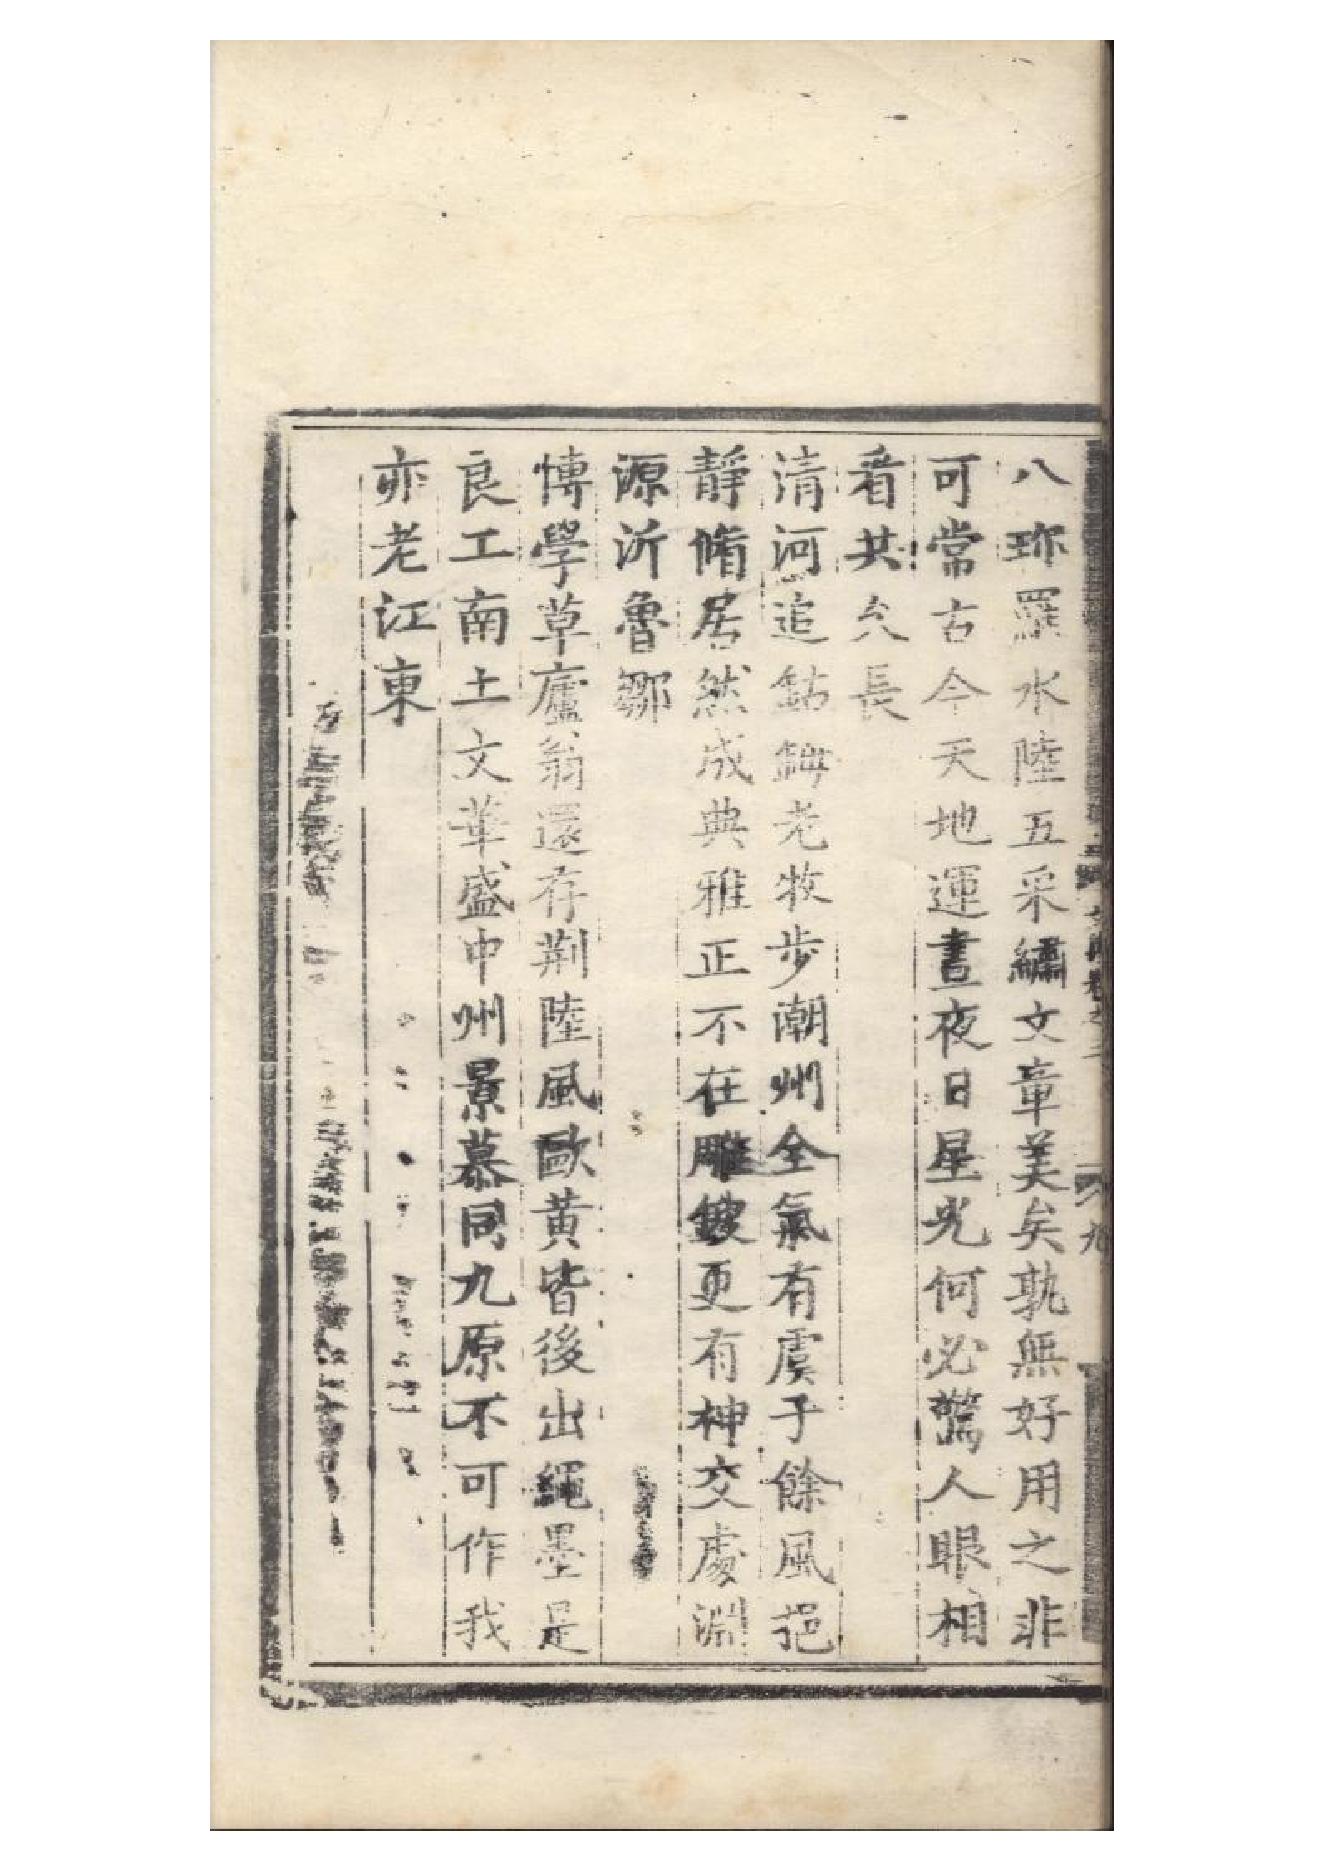 八珎羅水陸五采繡文章美矣孰無好用之非
可常古今天地運晝夜日星光何必驚人眼相
看共久長
清河追鈷鉧老牧步潮州全氣有虞子餘風挹
靜脩居然成典雅正不在雕鎪更有神交處淵
源沂魯鄒
博學草廬翁還存荆陸風歐黄皆後出繩墨是
良工南土文華盛中州景慕同九原不可作我
亦老江東